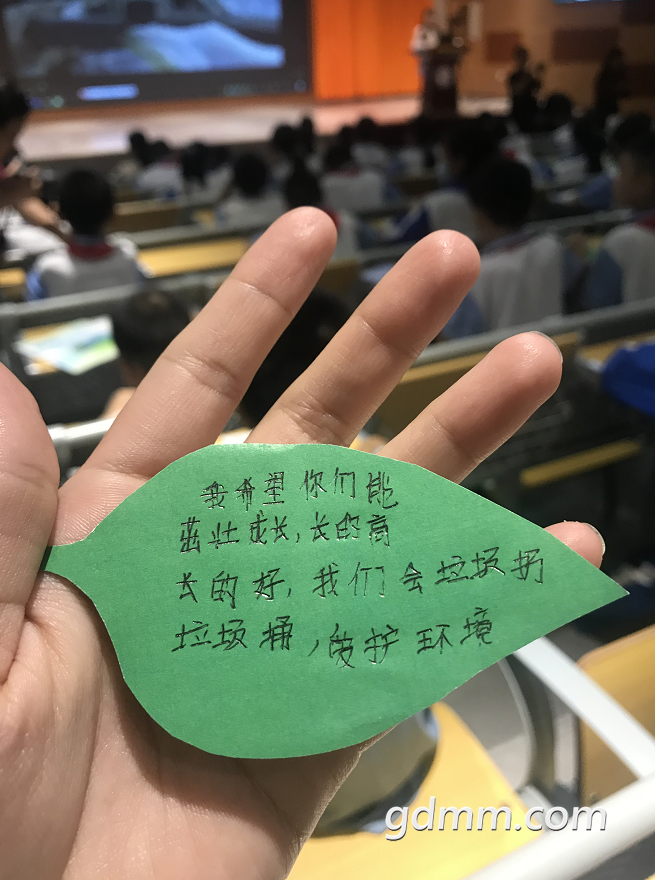 我希望你们能
茁壮成长,长的高
长的好,我们会垃圾扔
垃圾桶,爱护环境
gdmm.com